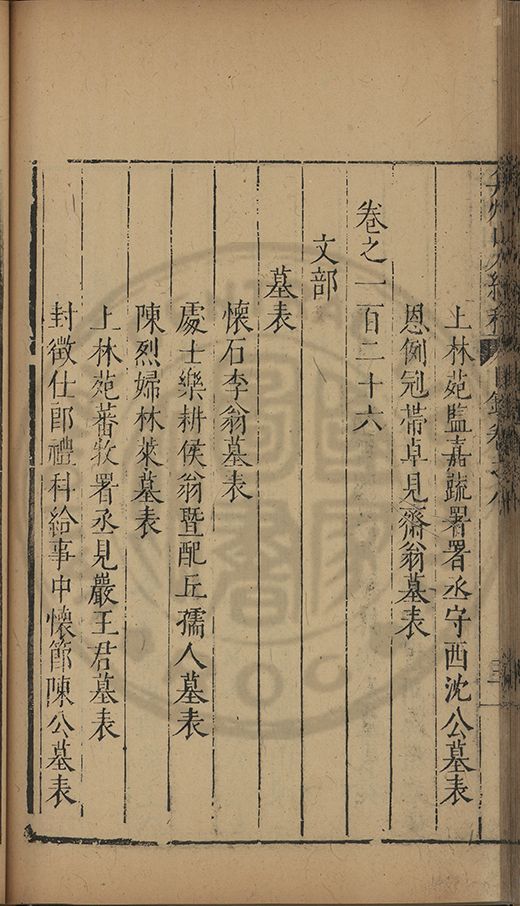 上林苑監嘉蔬署署丞守西沈公墓表
恩例冠帶卓見齋翁墓表
卷之一百二十六
文部
墓表
懷石李翁墓表
處士樂耕侯翁暨配丘孺人墓表
陳烈婦林萊墓表
上林苑蕃牧署丞見嚴王君墓表
封徵仕郎禮科給事中懷節陳公墓表